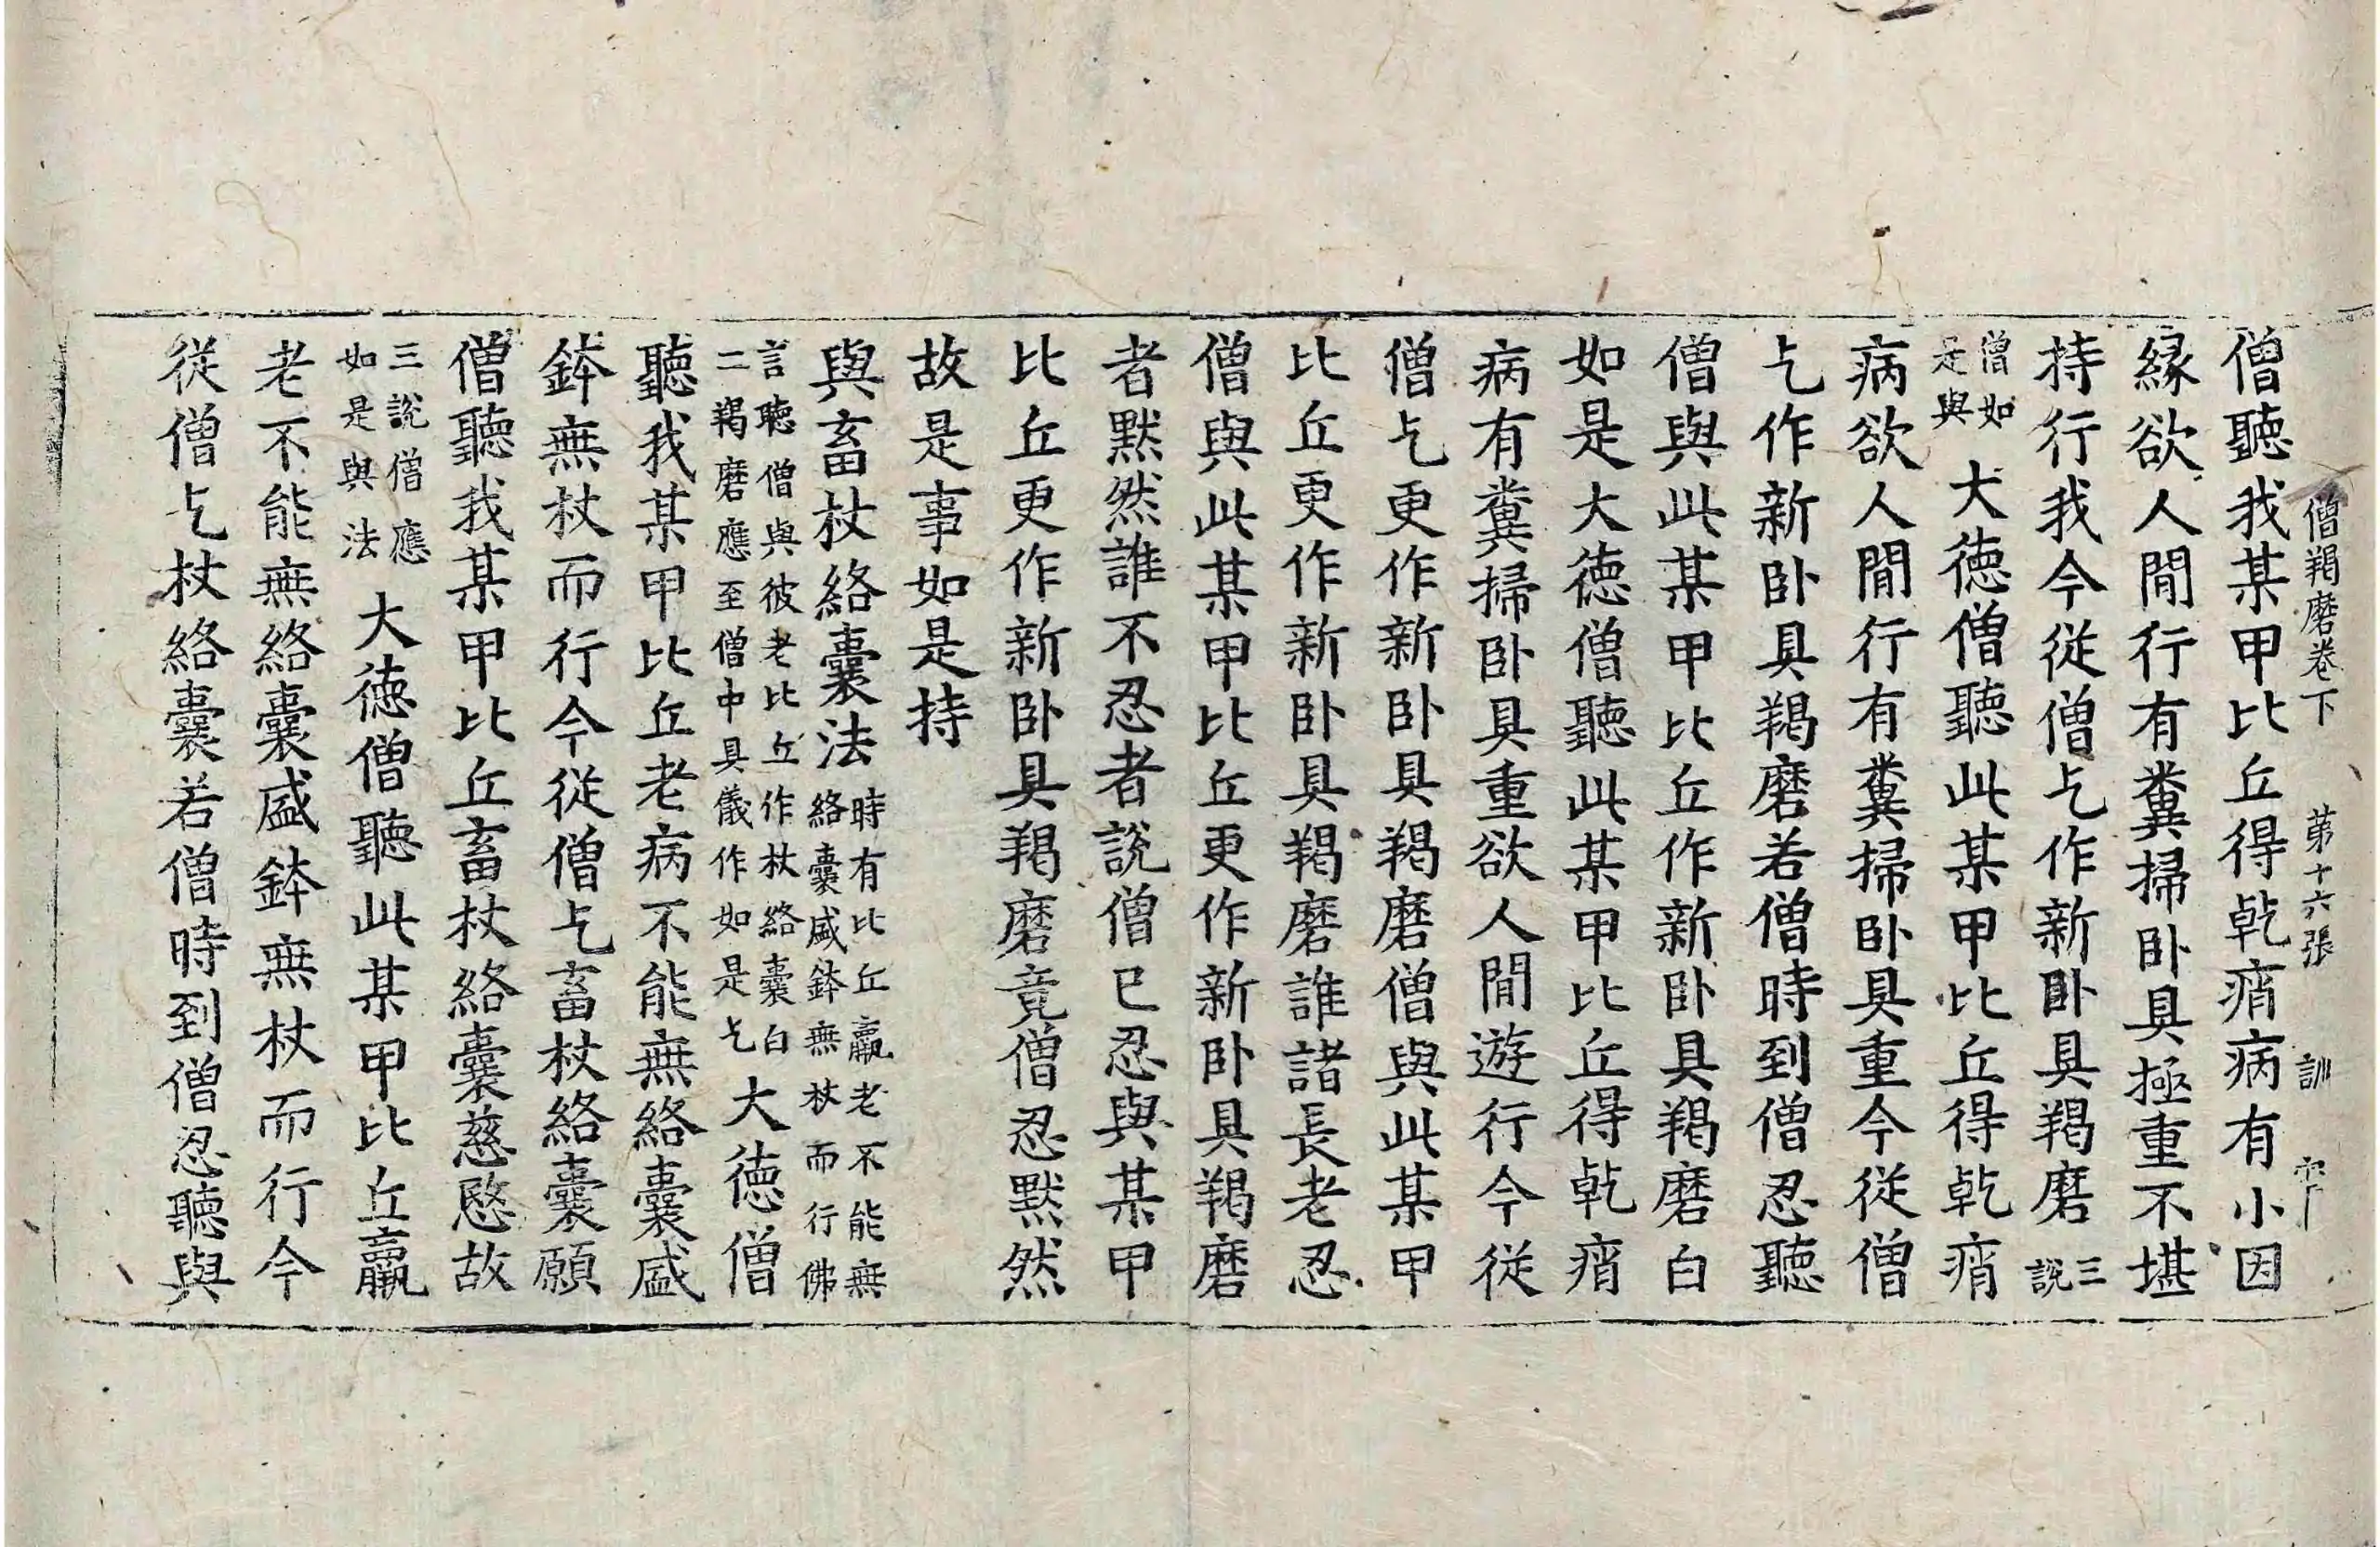 僧羯磨卷下 第十六張 訓
僧聽我某甲比丘得乹痟病有小因
縁欲人間行有糞掃卧具極重不堪
持行我今從僧乞作新卧具羯磨三說
僧如是與大徳僧聽此某甲比丘得乹痟
病欲人間行有糞掃卧具重今從僧
乞作新卧具羯磨若僧時到僧忍聽
僧與此某甲比丘作新卧具羯磨白
如是大徳僧聽此某甲比丘得乹痟
病有糞掃卧具重欲人間遊行今從
僧乞更作新卧具羯磨僧與此某甲
比丘更作新卧具羯磨誰諸長老忍
僧與此某甲比丘更作新卧具羯磨
者黙然誰不忍者說僧已忍與某甲
比丘更作新卧具羯磨竟僧忍黙然
故是事如是持
與畜杖絡囊法時有比丘羸老不能無絡囊盛鉢無杖而行佛
言聽僧與彼老比丘作杖絡囊白二羯磨應至僧中具儀作如是乞大徳僧
聽我某甲比丘老病不能無絡囊盛
鉢無杖而行今從僧乞畜杖絡囊願
僧聽我某甲比丘畜杖絡囊慈愍故
三說僧應如是與法大徳僧聽此某甲比丘羸
老不能無絡囊盛鉢無杖而行今
從僧乞杖絡囊若僧時到僧忍聽與